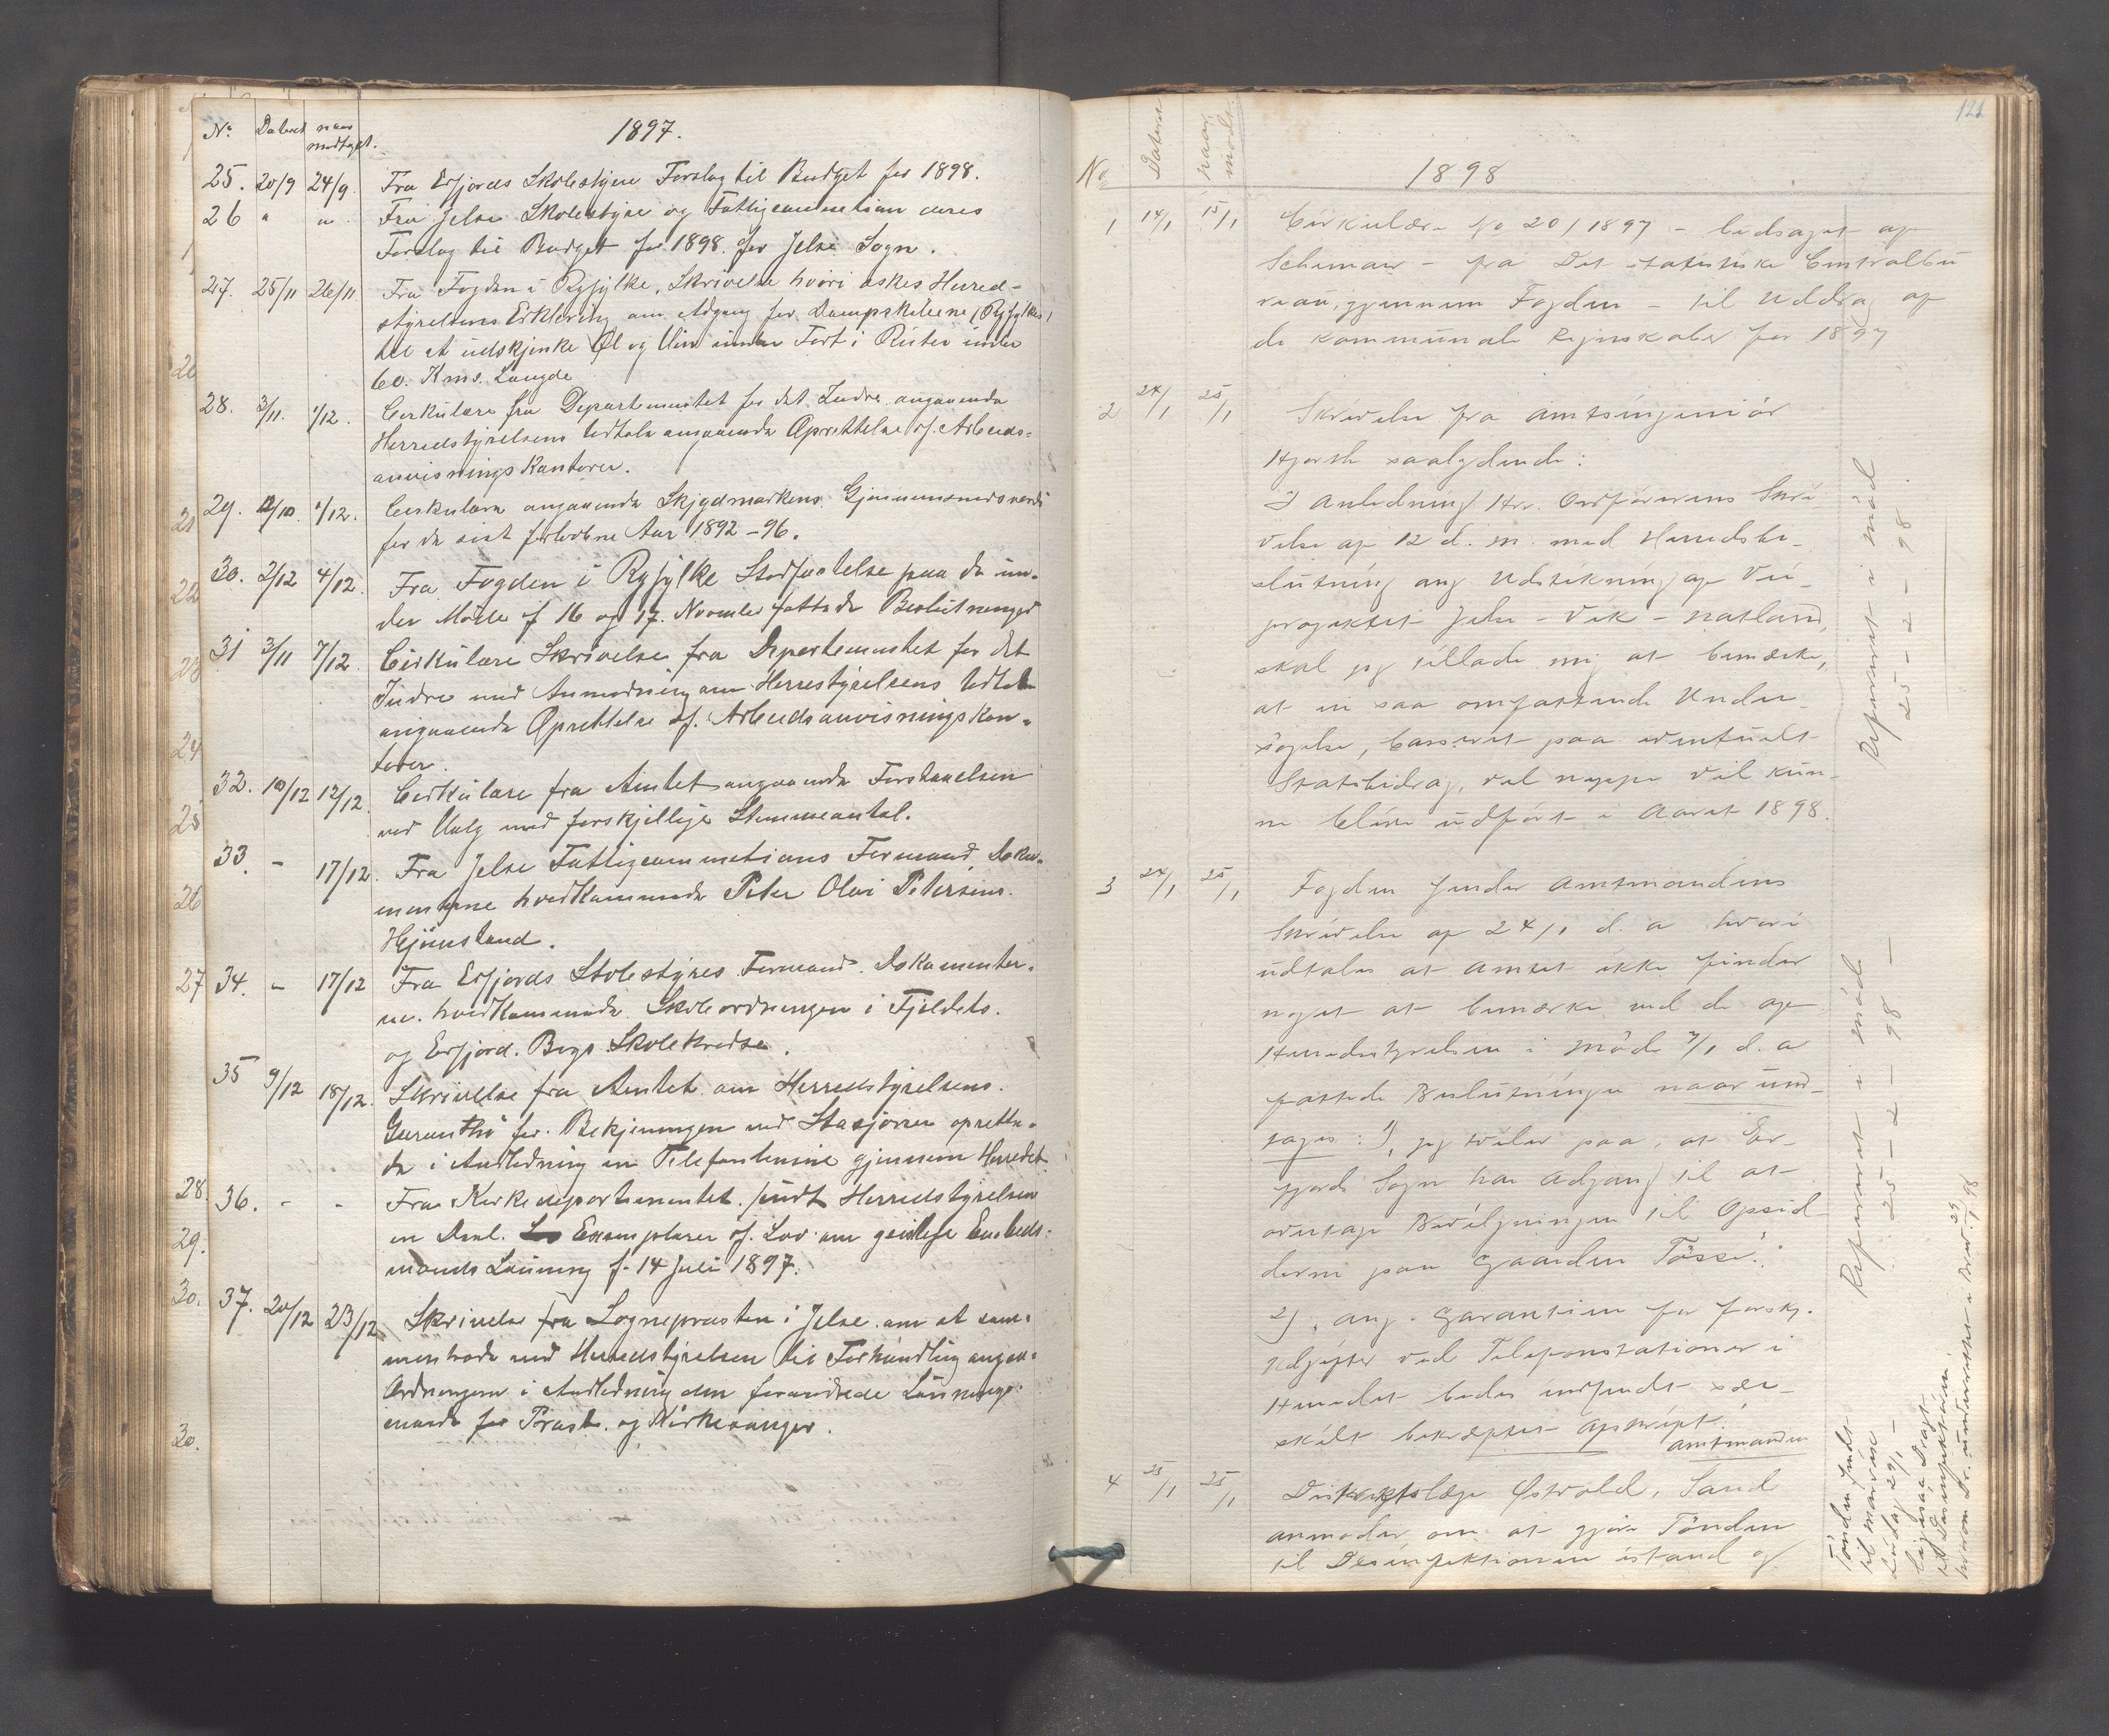 No. Dateret naar modtaget. 1897.
25. 20/9 24/9. Fra Erfjords Skolestyre Forslag til Budget for 1898.
26 " " Fra Jelse Skolestyre og Fattigcommission deres
Forslag til Budget for 1898 for Jelse Sogn.
27. 25/11 26/11 Fra Fogden i Ryfylke, Skrivelse hvori æskes Herred-
styrelsens Erklæring om Adgang for Dampskibene (Ryfylke)
til at udskjenke Øl og Vin under Fart i Ruter under
60. Kms. Længde
28. 3/11. 1/12. Cirkulære fra Departementet for det Indre angaaende
Herredstyrelsens Udtale angaaende Oprettelse af Arbeids-
anvisnings Kontorer.
29. 12/10 1/12. Cirkulære angaaende Skjydsmarkens Gjennemsnidsverdi
for de sist forløbne Aar 1892-96.
30. 2/12 4/12. Fra Fogden i Ryfylke Stadfæstelse paa de un-
der Møde af 16 og 17. November fattede Beslutninger
31 3/11 7/12. Cirkulære Skrivelse fra Departementet for det
Indre med Anmodning om Herrestyrelsens Udtale
angaaende Oprettelse af Arbeidsanvisningskon-
torer.
32. 10/12 12/12. Cirkulære fra Amtet angaaende Forstaaelsen
ved Valg med forskjellige Stemmeantal.
33. - 17/12. Fra Jelse Fattigcommissions Formand Doku-
menterne hvedkommende Peter Olai Petersens
Hjemstand.
34. - 17/12 Fra Erfjords Skolestyres Formand Dokumenter-
ne hvedkommende Skoleordningen i Fjeldets
og Erfjord. Bygs Skolekredse.
35 9/12 18/12. Skrivelse fra Amtet om Herredstyrelsens
Garanthi for Betjeningen ved Stasjoner oprette-
de i Anledning en Telefonlinie gjennem Herredet
36. - - Fra Kirkedepartementet sendt Herredstyrelsen
en Deel Exemplarer af Lov om geistlige Embeds-
mænds Lønning af 14 Juli 1897.
37. 20/12 23/12 Skrivelse fra Sognepresten i Jelse om at sam-
mentræde med Herredstyrelsen til Forhandling angaa.
Ordningen i Anledning den forandrede Lønnings-
maade for Præst og Kirkesanger.
20
21
22
23
24
25
26
27
28.
29.
30.
30.
121
No Dateret naar modt. 1898
1 14/1 15/1 Cirkulære No 20/1897 - ledsaget af
Schemaer - fra Det statistiske Centralbu
reau, gjennem Fogden - til Uddrag af
de kommunale Regnskaber for 1897
2 24/1 25/1 Skrivelse fra Amtsingeniør
Hjorth saalydende:
"I Anledning Hr. Ordførerens Skri-
velse af 12 d. m. med Herredsbe-
slutning ang. Udstikning af Vei-
projektet Jelse - Vik - Natland,
skal jeg tillade mig at bemærke,
at en saa omfattende Under-
søgelse, baseret paa eventuelt
Statsbidrag, vel neppe vil kun-
ne blive udført i Aaret 1898.
Refereret i möd
25-2-98.
3 24/1 25/1 Fogden sender Amtmandens
Skrivelse af 24/1 d. a hvori
udtales at Amtet ikke finder
noget at bemærke ved de af
Herredsstyrelsen i Möde 7/1 d. a
fattede Beslutninger naar und-
tages: 1) jeg tviler paa, at Er-
fjords Sogn har Adgang til at
overtage Bevilgningen til Opsid-
derne paa Gaarden Tøsse".
2) "ang. Garantien for forskj.
Udgifter ved Telefonstationer i
Herredet bedes indsendt sær-
skilt bekræftet Afskrift".
Amtmanden
Refereret i möde
25-2-98-
4 25/1 25/1 Distriktslæge Østvold, Sand
anmoder om at gjøre Tønden
til Desinfektionen istand og
Tönden sendt
til
Lørdag 29/1 -
til Desinfektion,
hvorom Dr. underrettet i Brev 29/1 98